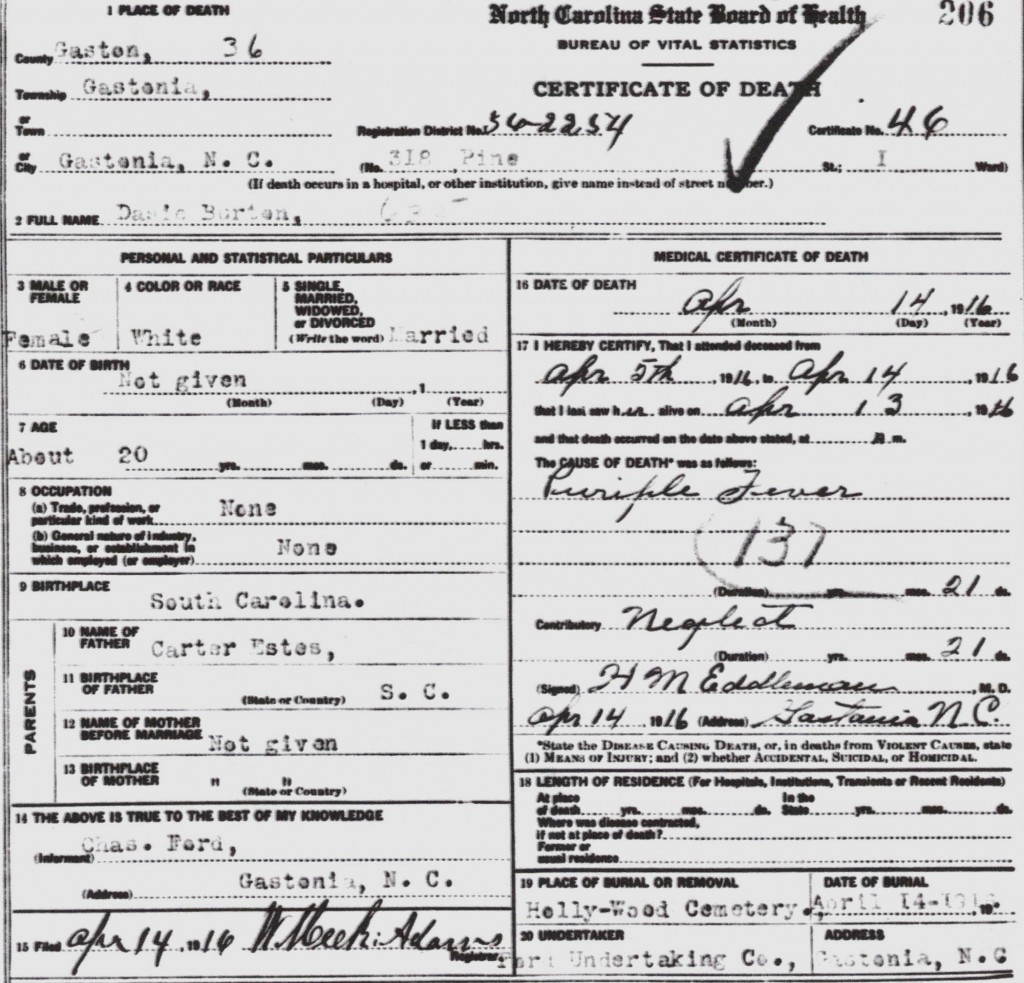 1 PLACE OF DEATH
North Carolina State Board of Health
206
BUREAU OF VITAL STATISTICS
County Gaston, 36
CERTIFICATE OF DEATH
Township Gastonia,
or Town
Registration District No. 36-2254
Certificate No. 46
or City Gastonia, N. C.
(No. 318 Pine St.; I Ward)
(If death occurs in a hospital, or other institution, give name instead of street number.)
2 FULL NAME Burton,
PERSONAL AND STATISTICAL PARTICULARS
3 MALE OR FEMALE
Female
4 COLOR OR RACE
White
5 SINGLE, MARRIED, WIDOWED, or DIVORCED
(Write the word) Married
6 DATE OF BIRTH
Not given , 1
(Month) (Day) (Year)
7 AGE
About 20 yrs. mos. ds.
If LESS than
1 day, hrs.
or min.
8 OCCUPATION
(a) Trade, profession, or particular kind of work None
(b) General nature of industry, business, or establishment in which employed (or employer) None
9 BIRTHPLACE
South Carolina.
PARENTS
10 NAME OF FATHER Carter Estes,
11 BIRTHPLACE OF FATHER
(State or Country) S. C.
12 NAME OF MOTHER BEFORE MARRIAGE Not given
13 BIRTHPLACE OF MOTHER " "
(State or Country)
14 THE ABOVE IS TRUE TO THE BEST OF MY KNOWLEDGE
(Informant) Chas. Ford,
(Address) Gastonia, N. C.
15 Filed Apr 14, 1916 W Meek Adams
Registrar
MEDICAL CERTIFICATE OF DEATH
16 DATE OF DEATH
Apr 14, 1916
(Month) (Day) (Year)
17 I HEREBY CERTIFY, That I attended deceased from
Apr 5th, 1916, to Apr 14, 1916
that I last saw her alive on Apr 13, 1916
and that death occurred on the date above stated, at m.
The CAUSE OF DEATH* was as follows:
Puriple Fever
137
(Duration) yrs. mos. 21 ds.
Contributory Neglect
(Duration) yrs. mos. 21 ds.
(Signed) H M Eddleman, M. D.
Apr 14 1916 (Address) Gastonia N.C.
*State the DISEASE CAUSING DEATH, or, in deaths from VIOLENT CAUSES, state
(1) MEANS OF INJURY; and (2) whether ACCIDENTAL, SUICIDAL, OR HOMICIDAL.
18 LENGTH OF RESIDENCE (For Hospitals, Institutions, Transients or Recent Residents)
At place of death yrs. mos. ds. In the State yrs. mos. ds.
Where was disease contracted,
if not at place of death?
Former or
usual residence
19 PLACE OF BURIAL OR REMOVAL
Holly-Wood Cemetery.
DATE OF BURIAL
April 14-1916. 19
20 UNDERTAKER
Ford Undertaking Co.,
ADDRESS
Gastonia, N.C